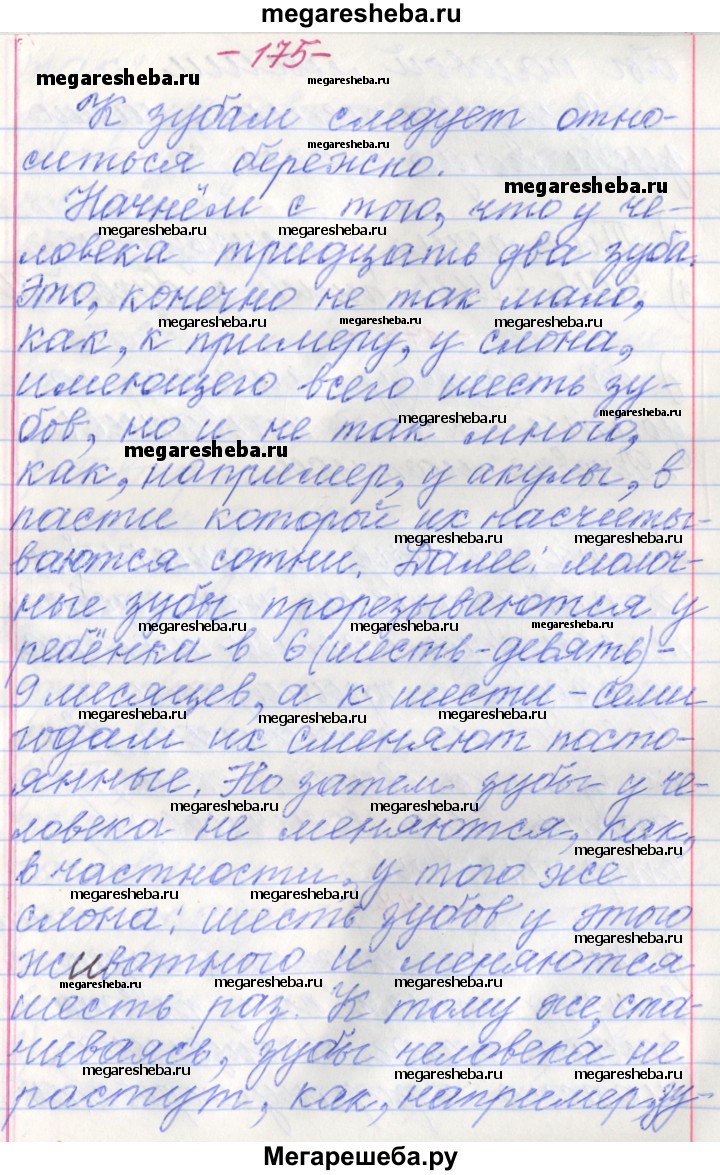 megaresheba.ru
- 175 -
megaresheba.ru
megaresheba.ru
К зубам следует отно-
megaresheba.ru
ситься бережно.
megaresheba.ru
Начнём с того, что у че-
megaresheba.ru
megaresheba.ru
ловека тридцать два зуба.
Это, конечно не так мало,
megaresheba.ru
megaresheba.ru
megaresheba.ru
как, к примеру, у слона,
имеющего всего шесть зу-
megaresheba.ru
megaresheba.ru
бов, но и не так много,
megaresheba.ru
как, например, у акулы, в
пасти которой их насчиты-
megaresheba.ru
megaresheba.ru
ваются сотни. Далее: молоч-
ные зубы прорезываются у
megaresheba.ru
megaresheba.ru
megaresheba.ru
ребёнка в 6 (шесть-девять)-
9 месяцев, а к шести - семи
megaresheba.ru
megaresheba.ru
megaresheba.ru
годам их сменяют посто-
янные. Но затем зубы у че-
megaresheba.ru
megaresheba.ru
ловека не меняются, как,
megaresheba.ru
в частности, у того же
megaresheba.ru
megaresheba.ru
слона: шесть зубов у этого
megaresheba.ru
животного и меняются
megaresheba.ru
megaresheba.ru
megaresheba.ru
шесть раз. К тому же, ста-
чиваясь, зубы человека не
megaresheba.ru
megaresheba.ru
megaresheba.ru
растут, как, например, у
Мегарешеба.ру